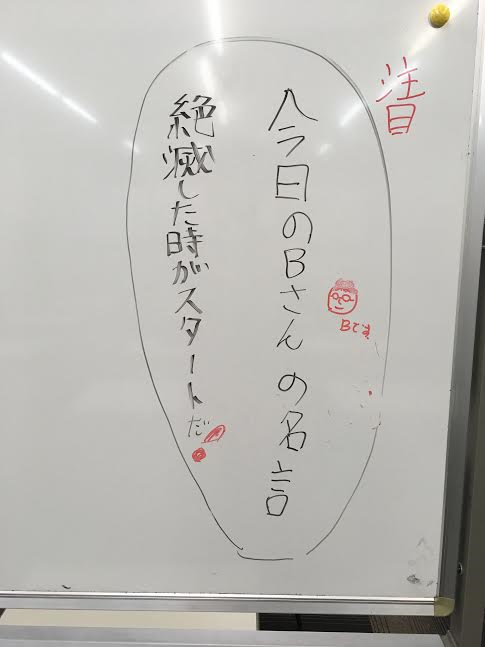 注目
今日のBさんの名言
Bです
絶滅した時がスタートだ!